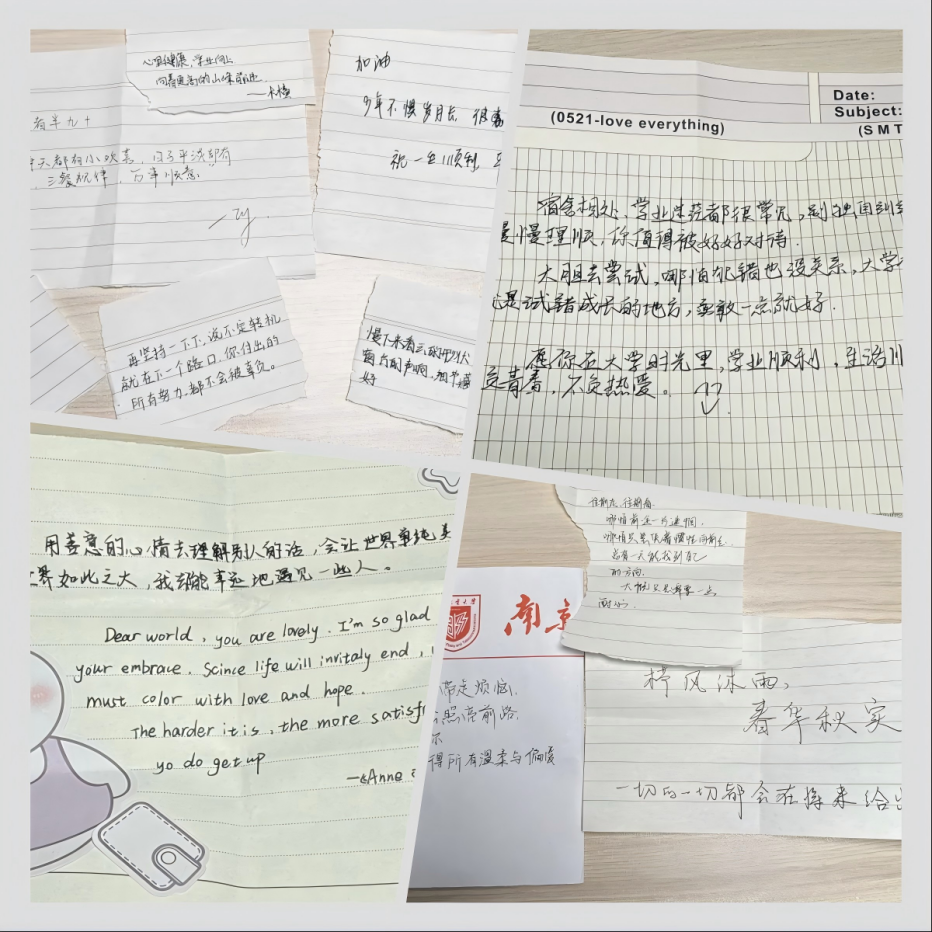 心理健康,学业向上
向着更高的山峰前进
加油
少年不惧岁月长
祝一生顺利
看半九十
天都有小欢喜,日子平淡却有
三餐规律,万事顺意
zy
再坚持一下下,说不定转机
就在下一个路口,你付出的
所有努力,都不会被辜负。
慢下来看云的形状
窗外的声响,细节藏
好
Date:
Subject:
(0521-love everything)
(SMT
宿舍相处、学业迷茫都很常见,别独自纠结
慢慢理顺,你值得被好好对待.
大胆去尝试,哪怕犯错也没关系,大学
是试错成长的地方,勇敢一点就好.
愿你在大学时光里,学业顺利,生活
负青春,不负热爱。
用善意的心情去理解别人的话,会让世界单纯美
世界如此之大,我们能幸运地遇见一些人。
Dear world, you are lovely. I'm so glad
your embrace. Scince life will invitaly end,
must color with love and hope.
The harder it is, the more satisf
yo do get up
—Anne
往前走,往前看
哪怕前途一片迷惘,
哪怕只是凭着惯性向前走
总有一天能找到自己
的方向.
大概只是需要一点
耐心.
南京
带走烦恼,
照亮前路.
得所有温柔与偏爱
栉风沐雨,
春华秋实
一切的一切都会在将来给